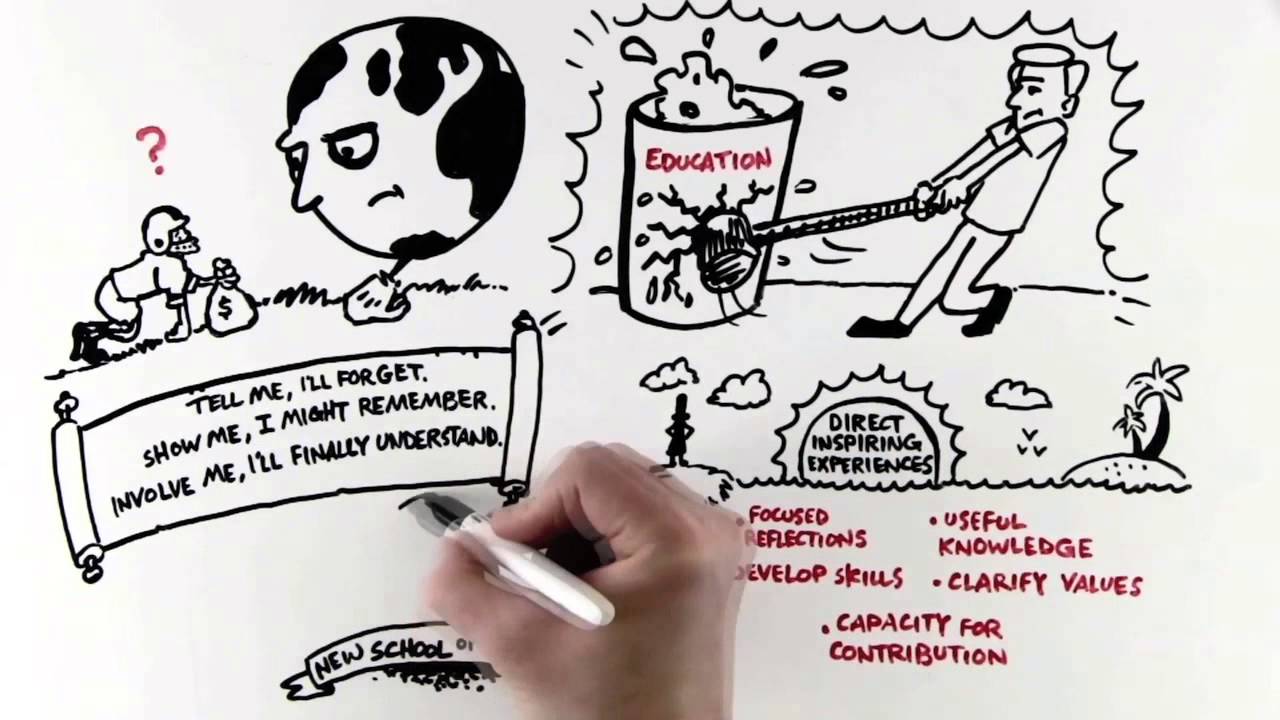 ?
$
EDUCATION
TELL ME, I'LL FORGET.
SHOW ME, I MIGHT REMEMBER.
INVOLVE ME, I'LL FINALLY UNDERSTAND.
DIRECT
INSPIRING
EXPERIENCES
• FOCUSED
REFLECTIONS
DEVELOP SKILLS
• USEFUL
KNOWLEDGE
• CLARIFY VALUES
• CAPACITY FOR
CONTRIBUTION
NEW SCHOOL